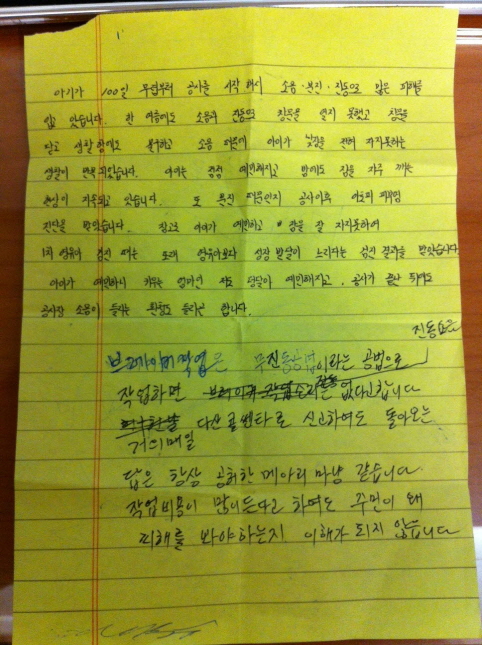 아기가 100일 무렵부터 공사를 시작해서 소음·분진·진동으로 많은 피해를
입고 있습니다. 한 여름에도 소음과 진동으로 창문을 열지 못했고 창문을
닫고 생활함에도 불구하고 소음 때문에 아이가 낮잠을 전혀 자지못하는
생활이 반복되었습니다. 아이는 점점 예민해지고 밤에도 잠을 자주 깨는
현상이 지속되고 있습니다. 또 분진 때문인지 공사이후 아토피 피부염
진단을 받았습니다. 참고로 아이가 예민하고 잠을 잘 자지못하여
1차 영유아 검진 때는 또래 영유아보다 성장 발달이 느리다는 검진 결과를 받았습니다.
아이가 예민하니 키우는 엄마인 저도 덩달아 예민해지고. 공사가 끝난 뒤에도
공사장 소음이 들리는 환청도 들리곤 합니다.
진동소음
브레이커 작업은 무진동공법이라는 공법으로
작업하면 진동은 없다고 합니다
거의매일 다산콜센타로 신고하여도 돌아오는
답은 항상 공허한 메아리 마냥 같습니다
작업비용이 많이든다고 하여도 주민이 왜
피해를 봐야하는지 이해가 되지 않습니다